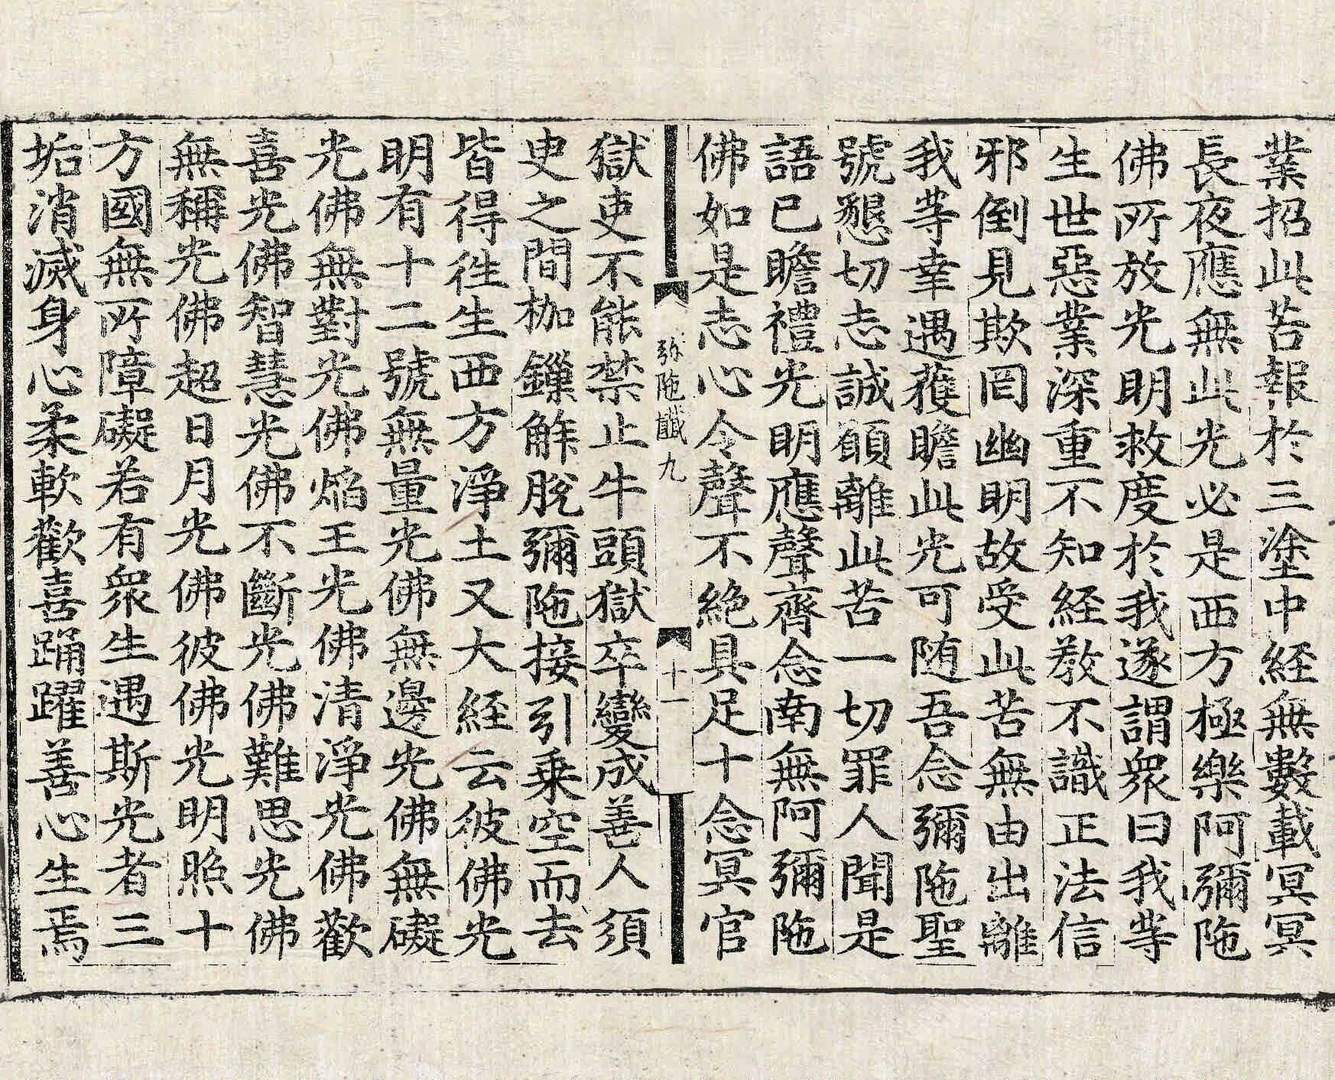 業招此苦報於三塗中經無數載冥冥
長夜應無此光必是西方極樂阿彌陁
佛所放光明救度於我遂謂衆曰我等
生世惡業深重不知經教不識正法信
邪倒見欺罔幽明故受此苦無由出離
我等幸遇獲瞻此光可随吾念彌陁聖
號懇切志誠願離此苦一切罪人聞是
語已瞻禮光明應聲齊念南無阿彌陁
佛如是志心令聲不絶具足十念冥官
弥陁懺九
十一
獄吏不能禁止牛頭獄卒變成善人須
史之間枷鏁解脫彌陁接引乗空而去
皆得徃生西方淨土又大經云彼佛光
明有十二號無量光佛無邊光佛無礙
光佛無對光佛焰王光佛清淨光佛歡
喜光佛智慧光佛不斷光佛難思光佛
無稱光佛超日月光佛彼佛光明照十
方國無所障礙若有衆生遇斯光者三
垢消滅身心柔軟歡喜踊躍善心生焉